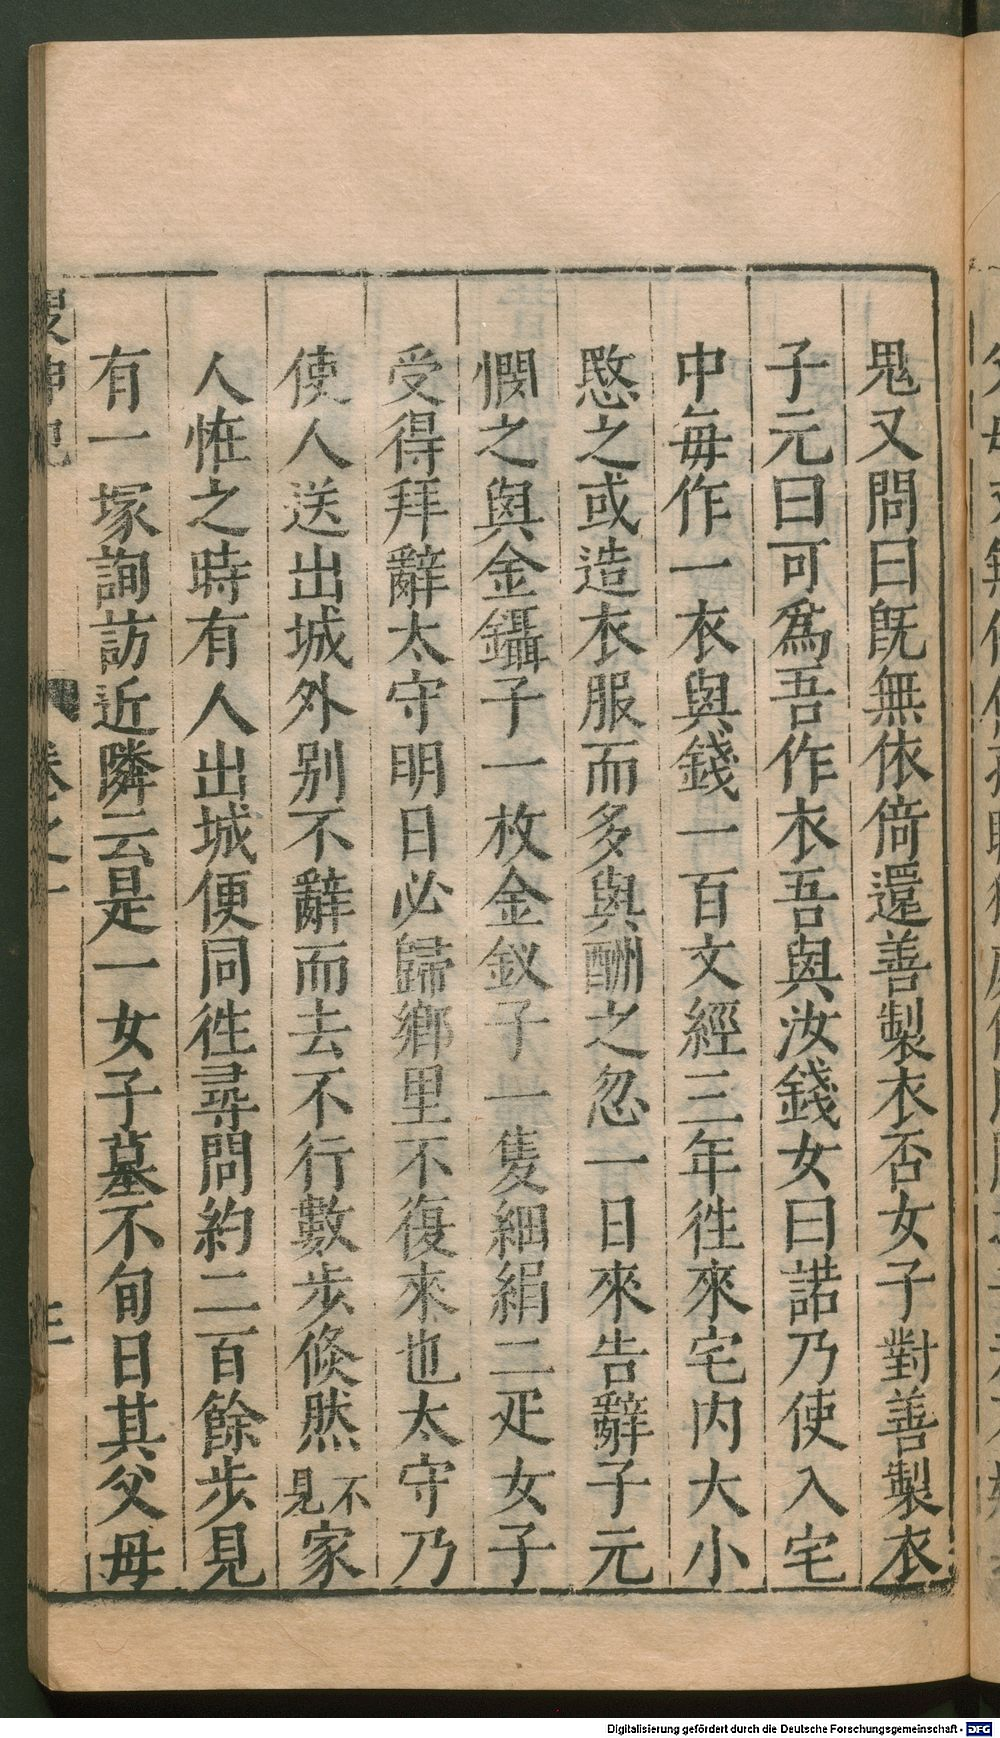 鬼又問曰旣無依倚還善製衣否女子對善製衣
子元曰可爲吾作衣吾與汝錢女曰諾乃使入宅
中每作一衣與錢一百文經三年徃來宅内大小
愍之或造衣服而多與酬之忽一日來告辭子元
憫之與金鑷子一枚金釵子一隻細絹二疋女子
受得拜辭太守明日必歸鄉里不復來也太守乃
使人送出城外别不辭而去不行數步倐然不見家
人恠之時有人出城便同徃尋問約二百餘步見
有一塚詢訪近隣云是一女子墓不旬日其父母
搜神記 卷之一 三
Digitalisierung gefördert durch die Deutsche Forschungsgemeinschaft - DFG